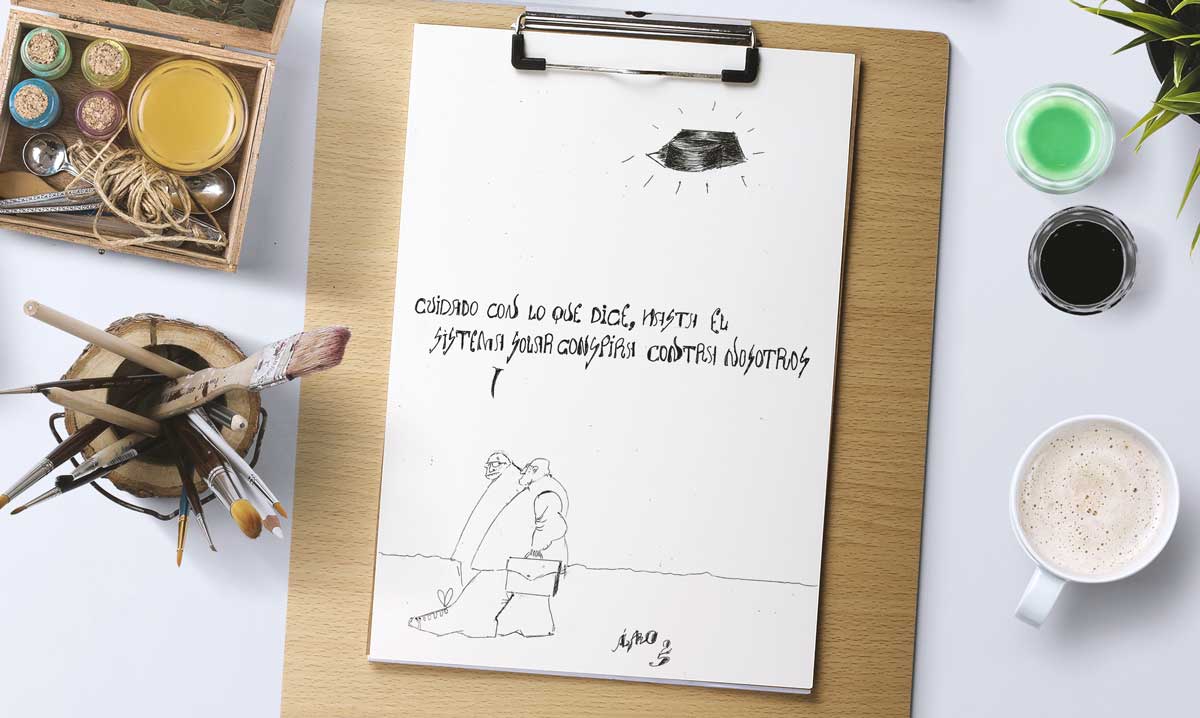 CUIDADO CON LO QUE DICE, HASTA EL
SISTEMA SOLAR CONSPIRA CONTRA NOSOTROS